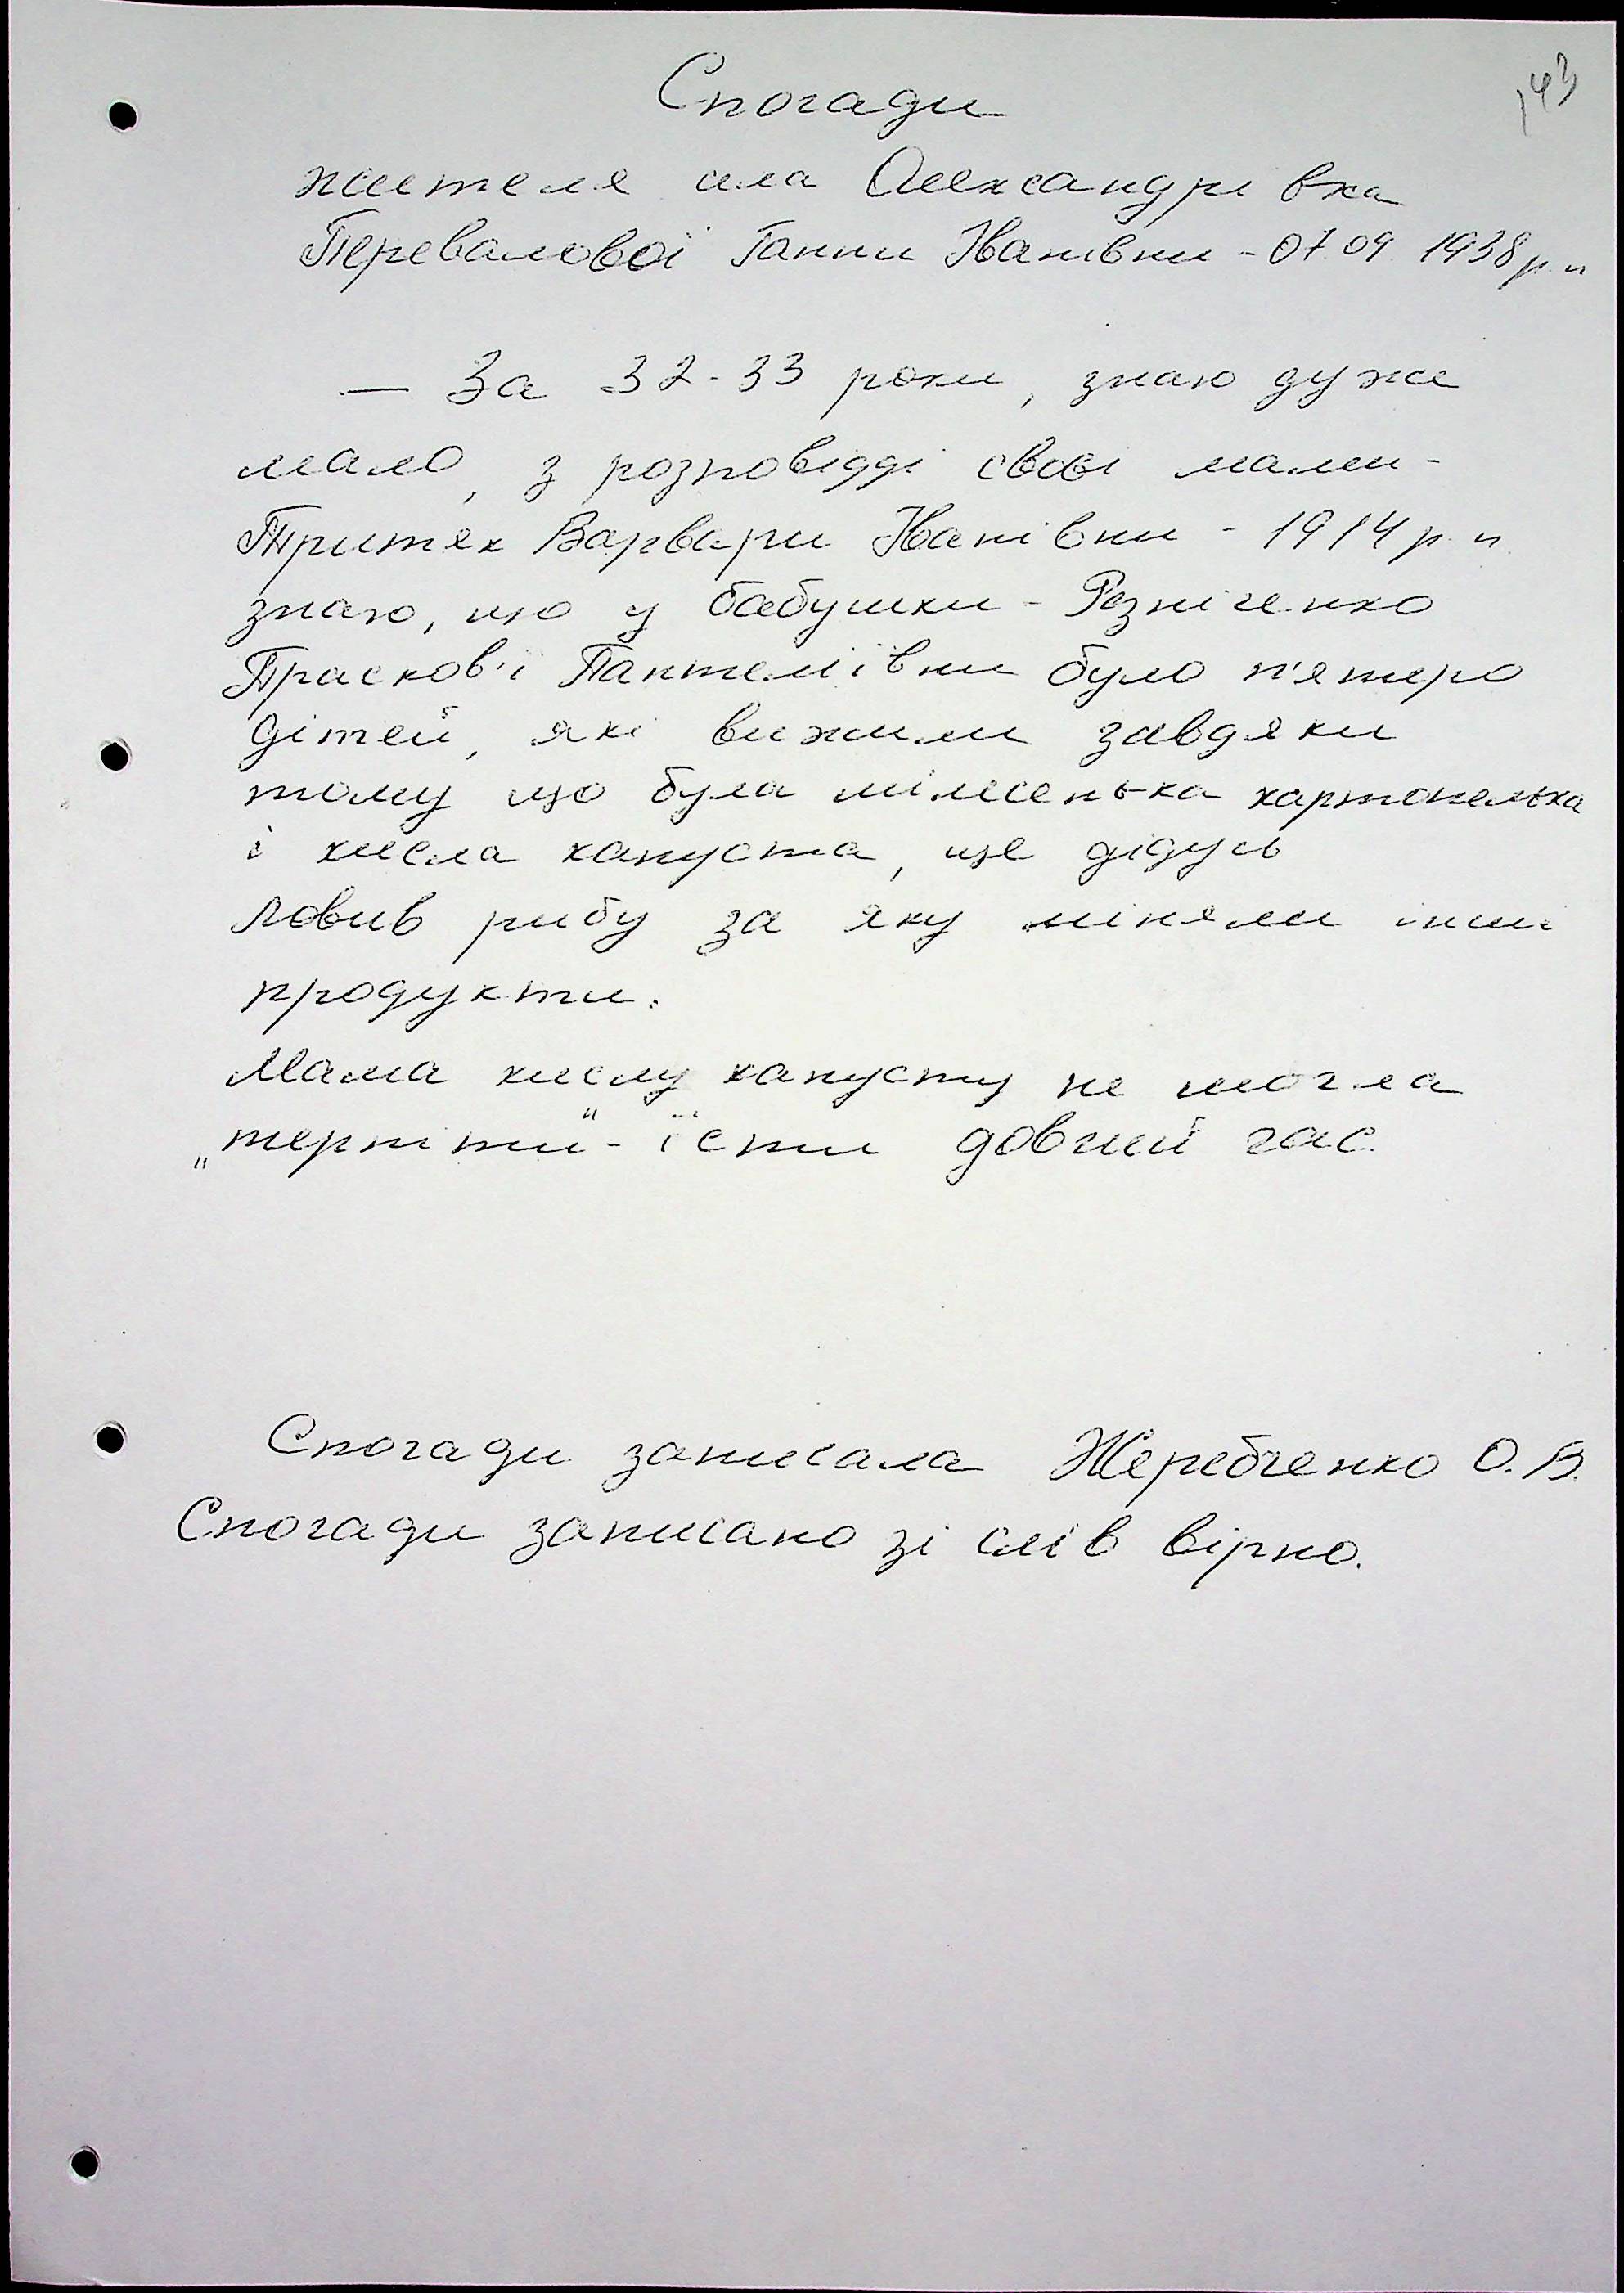 143
Спогади
жителя села Олександрівка
Перевалової Ганни Іванівни - 07.09. 1938 р.н
— За 32-33 роки, знаю дуже
мало, з розповідді своєї мами -
Притяк Варвари Іванівни - 1914 р.н.
знаю, що у бабушки - Резніченко
Прасков'ї Пантеліївни було п'ятеро
дітей, які вижили завдяки
тому що була мілесенька картопелька
і кисла капуста, ще дідусь
ловив рибу за яку міняли інші
продукти.
Мама кислу капусту не могла
„терпіти" - їсти довгий час.
Спогади записала Жеребченко О.В.
Спогади записано зі слів вірно.